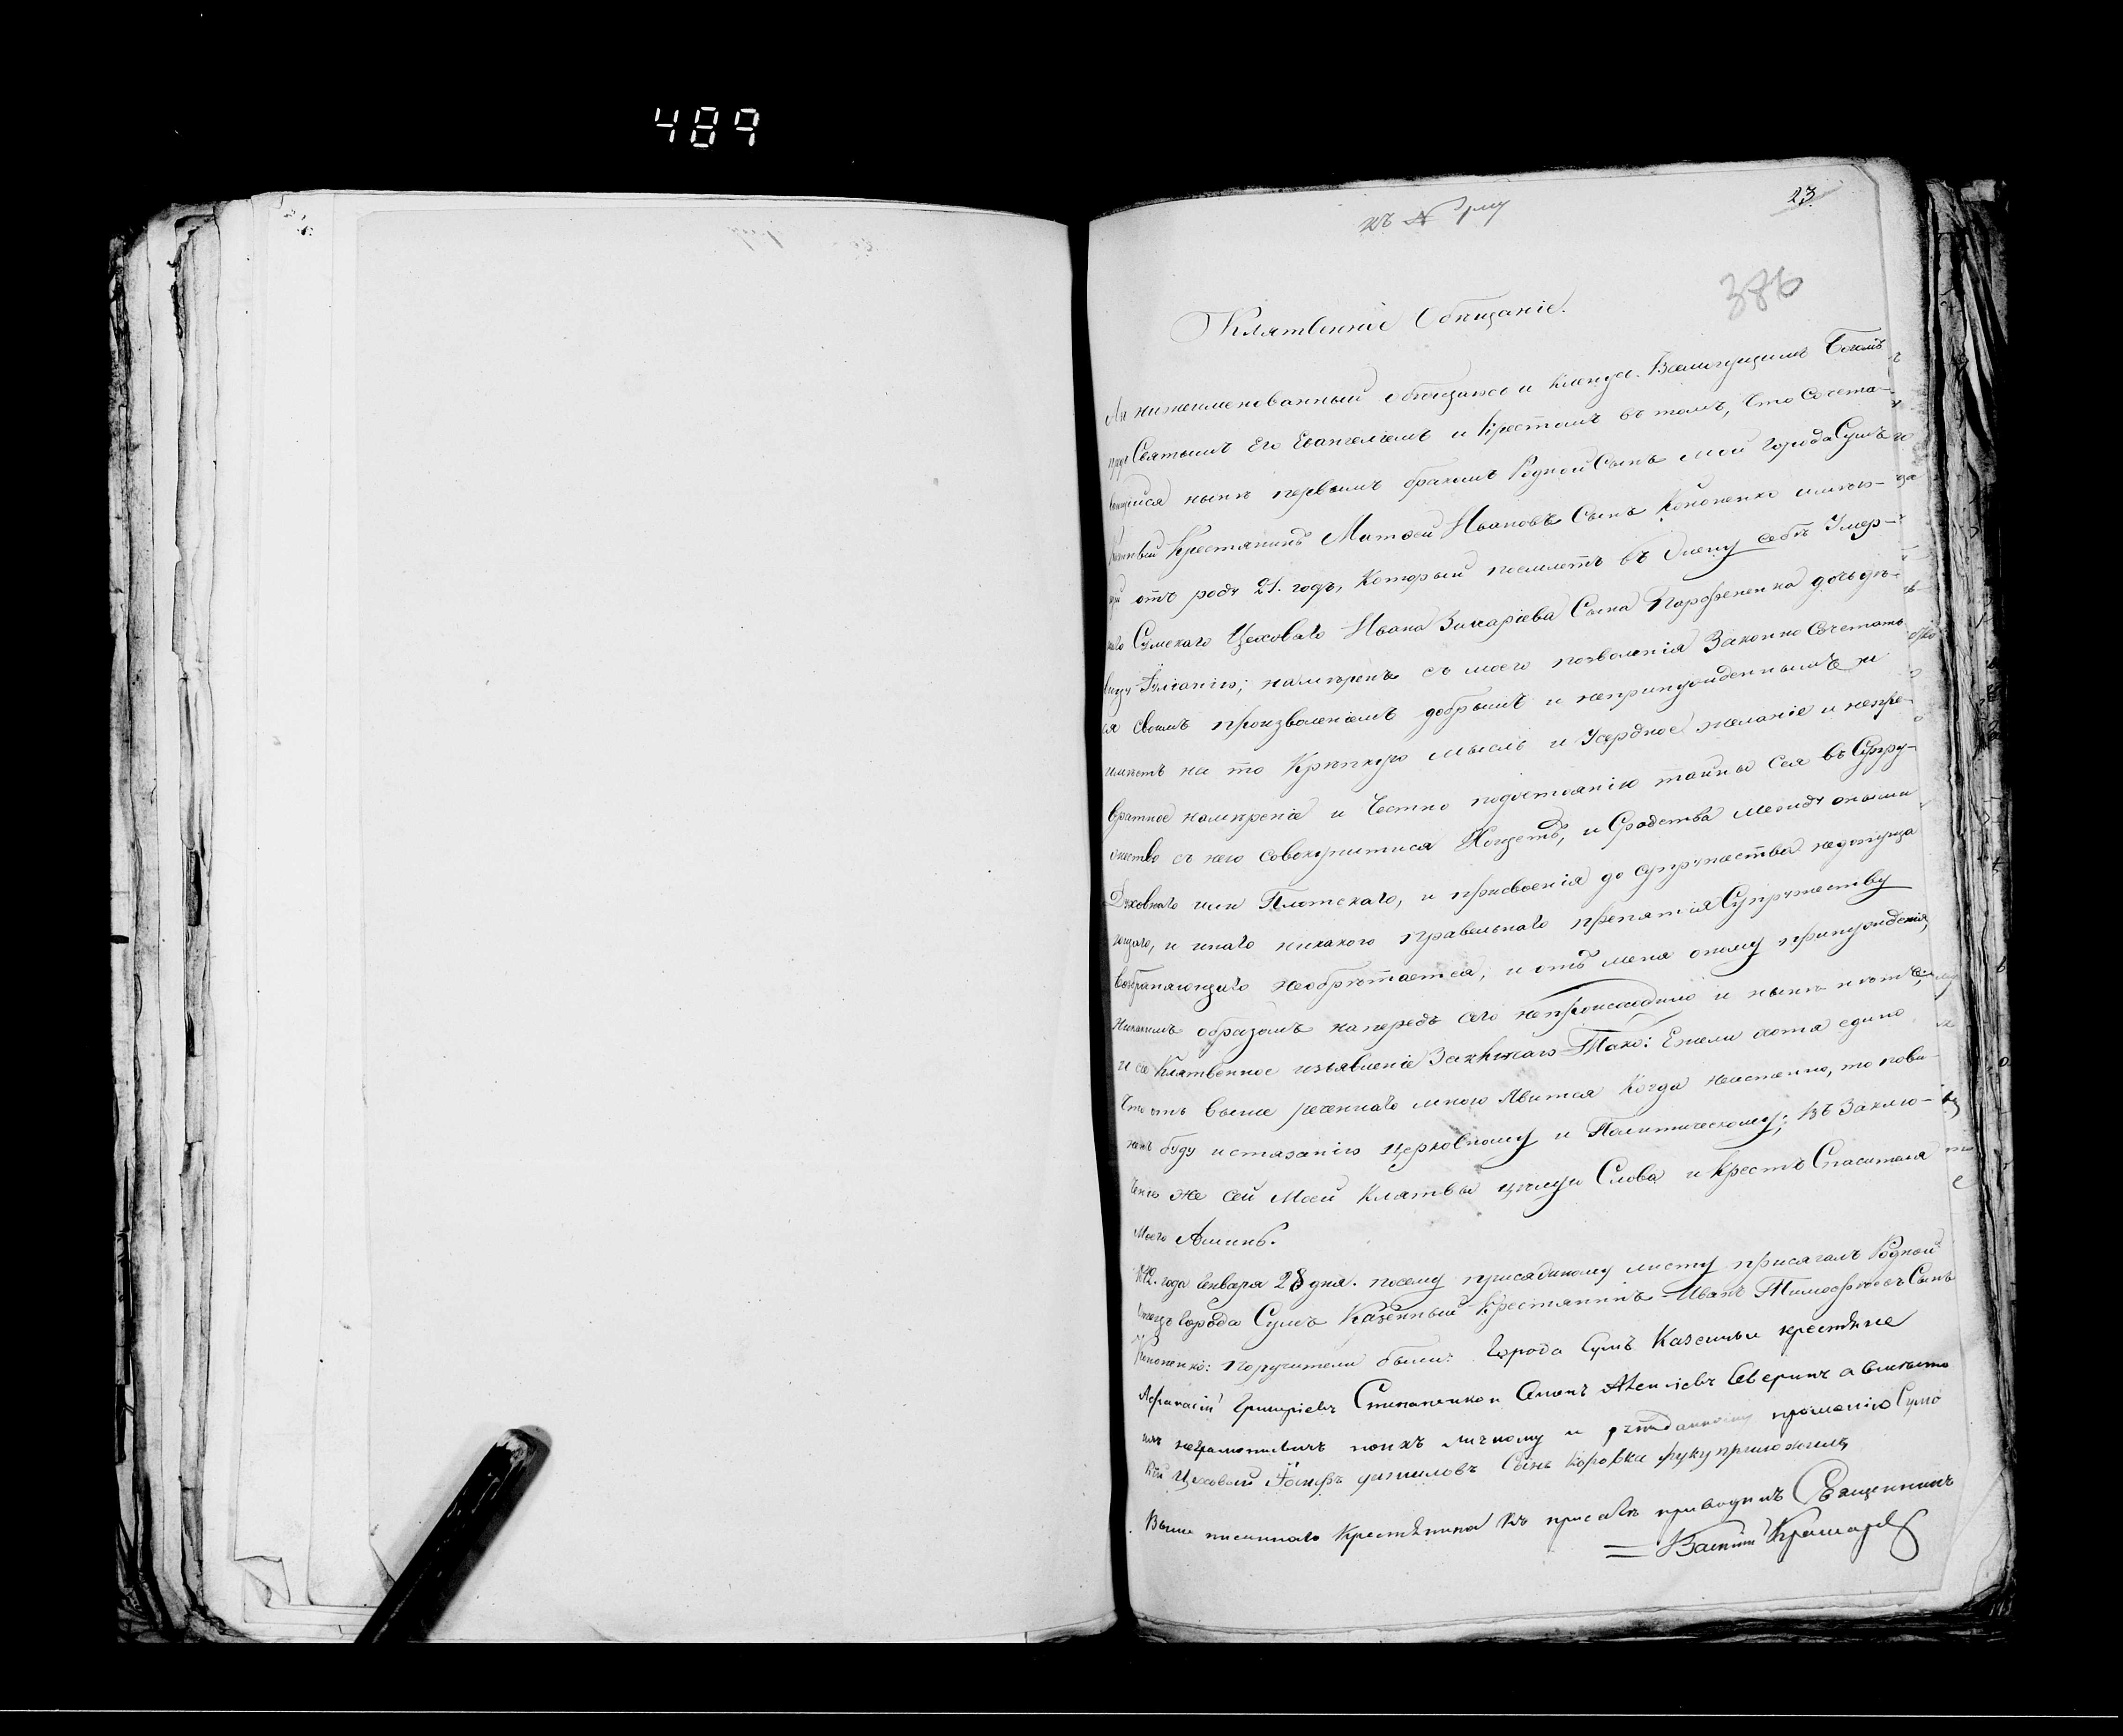 489
23
къ №
386
Клятвенное Обѣщаніе.
Я нижеименованный обѣщаюсь и кленусь Всемогущимъ Богомъ
предъ Святымъ Его Евангеліемъ и Крестомъ въ томъ, что Сочета-
вающійся нынѣ первымъ бракомъ Родной Сынъ мой Города Сумъ
Казенный Крестянинъ Матвей Ивановъ Сынъ Кононенко имѣю-
щій отъ роду 21. годъ, Который поемлетъ въ Жену себѣ Умер-
шаго Сумскаго Цеховаго Ивана Захаріева Сына Парфененка дочь дѣ-
вицу Іуліанію; намѣренъ съ моего позволенія Законно Сочетать
ся своимъ произволеніемъ добрымъ и непринужденнымъ и
имѣетъ на то Крѣпкую мысль и Усердное желаніе и непре-
вратное намѣреніе и Честно по достоянію тайны Сея въ Супру-
жество съ нею совокупитися Хощетъ, и Сродства между оными
Духовнаго или Плотскаго, и присвоенія до супружества недопуща
ющаго, и инаго никакого правельнаго препятія Супружеству
возбраняющаго необрѣтается, и отъ меня оному принужденія,
Никакимъ образомъ напередъ сего непроисходило и нынѣ нѣтъ,
и сіе Клятвенное изъявленіе Заключаю Тако: Ежели хотя едино
Что отъ выше реченнаго мною Явится Когда неистенно, то пови-
ненъ буду истязанію Церковному и Политическому; Въ Заклю-
ченіе же сей Моей Клятвы цѣлую Слова и Крестъ Спасителя
Моего Аминь.
года Генваря 28 дня. посему присяжному листу присягалъ Родной
Отецъ Города Сумъ Казенный Крестянинъ Иванъ Тимофѣевъ Сынъ
Кононенко: Поручители были: Города Сумъ Казенныи крестяне
Афанасій Григоріевъ Степаненко и Семенъ Северинъ а вмѣсто
ихъ неграмотныхъ поихъ личному и рукоданному прошенію Сумс
кій Цеховой Іосифъ даниловъ Сынъ Коровка руку приложилъ,
Выше писаннаго Крестянина Къ присягѣ приводилъ Священникъ
Василій